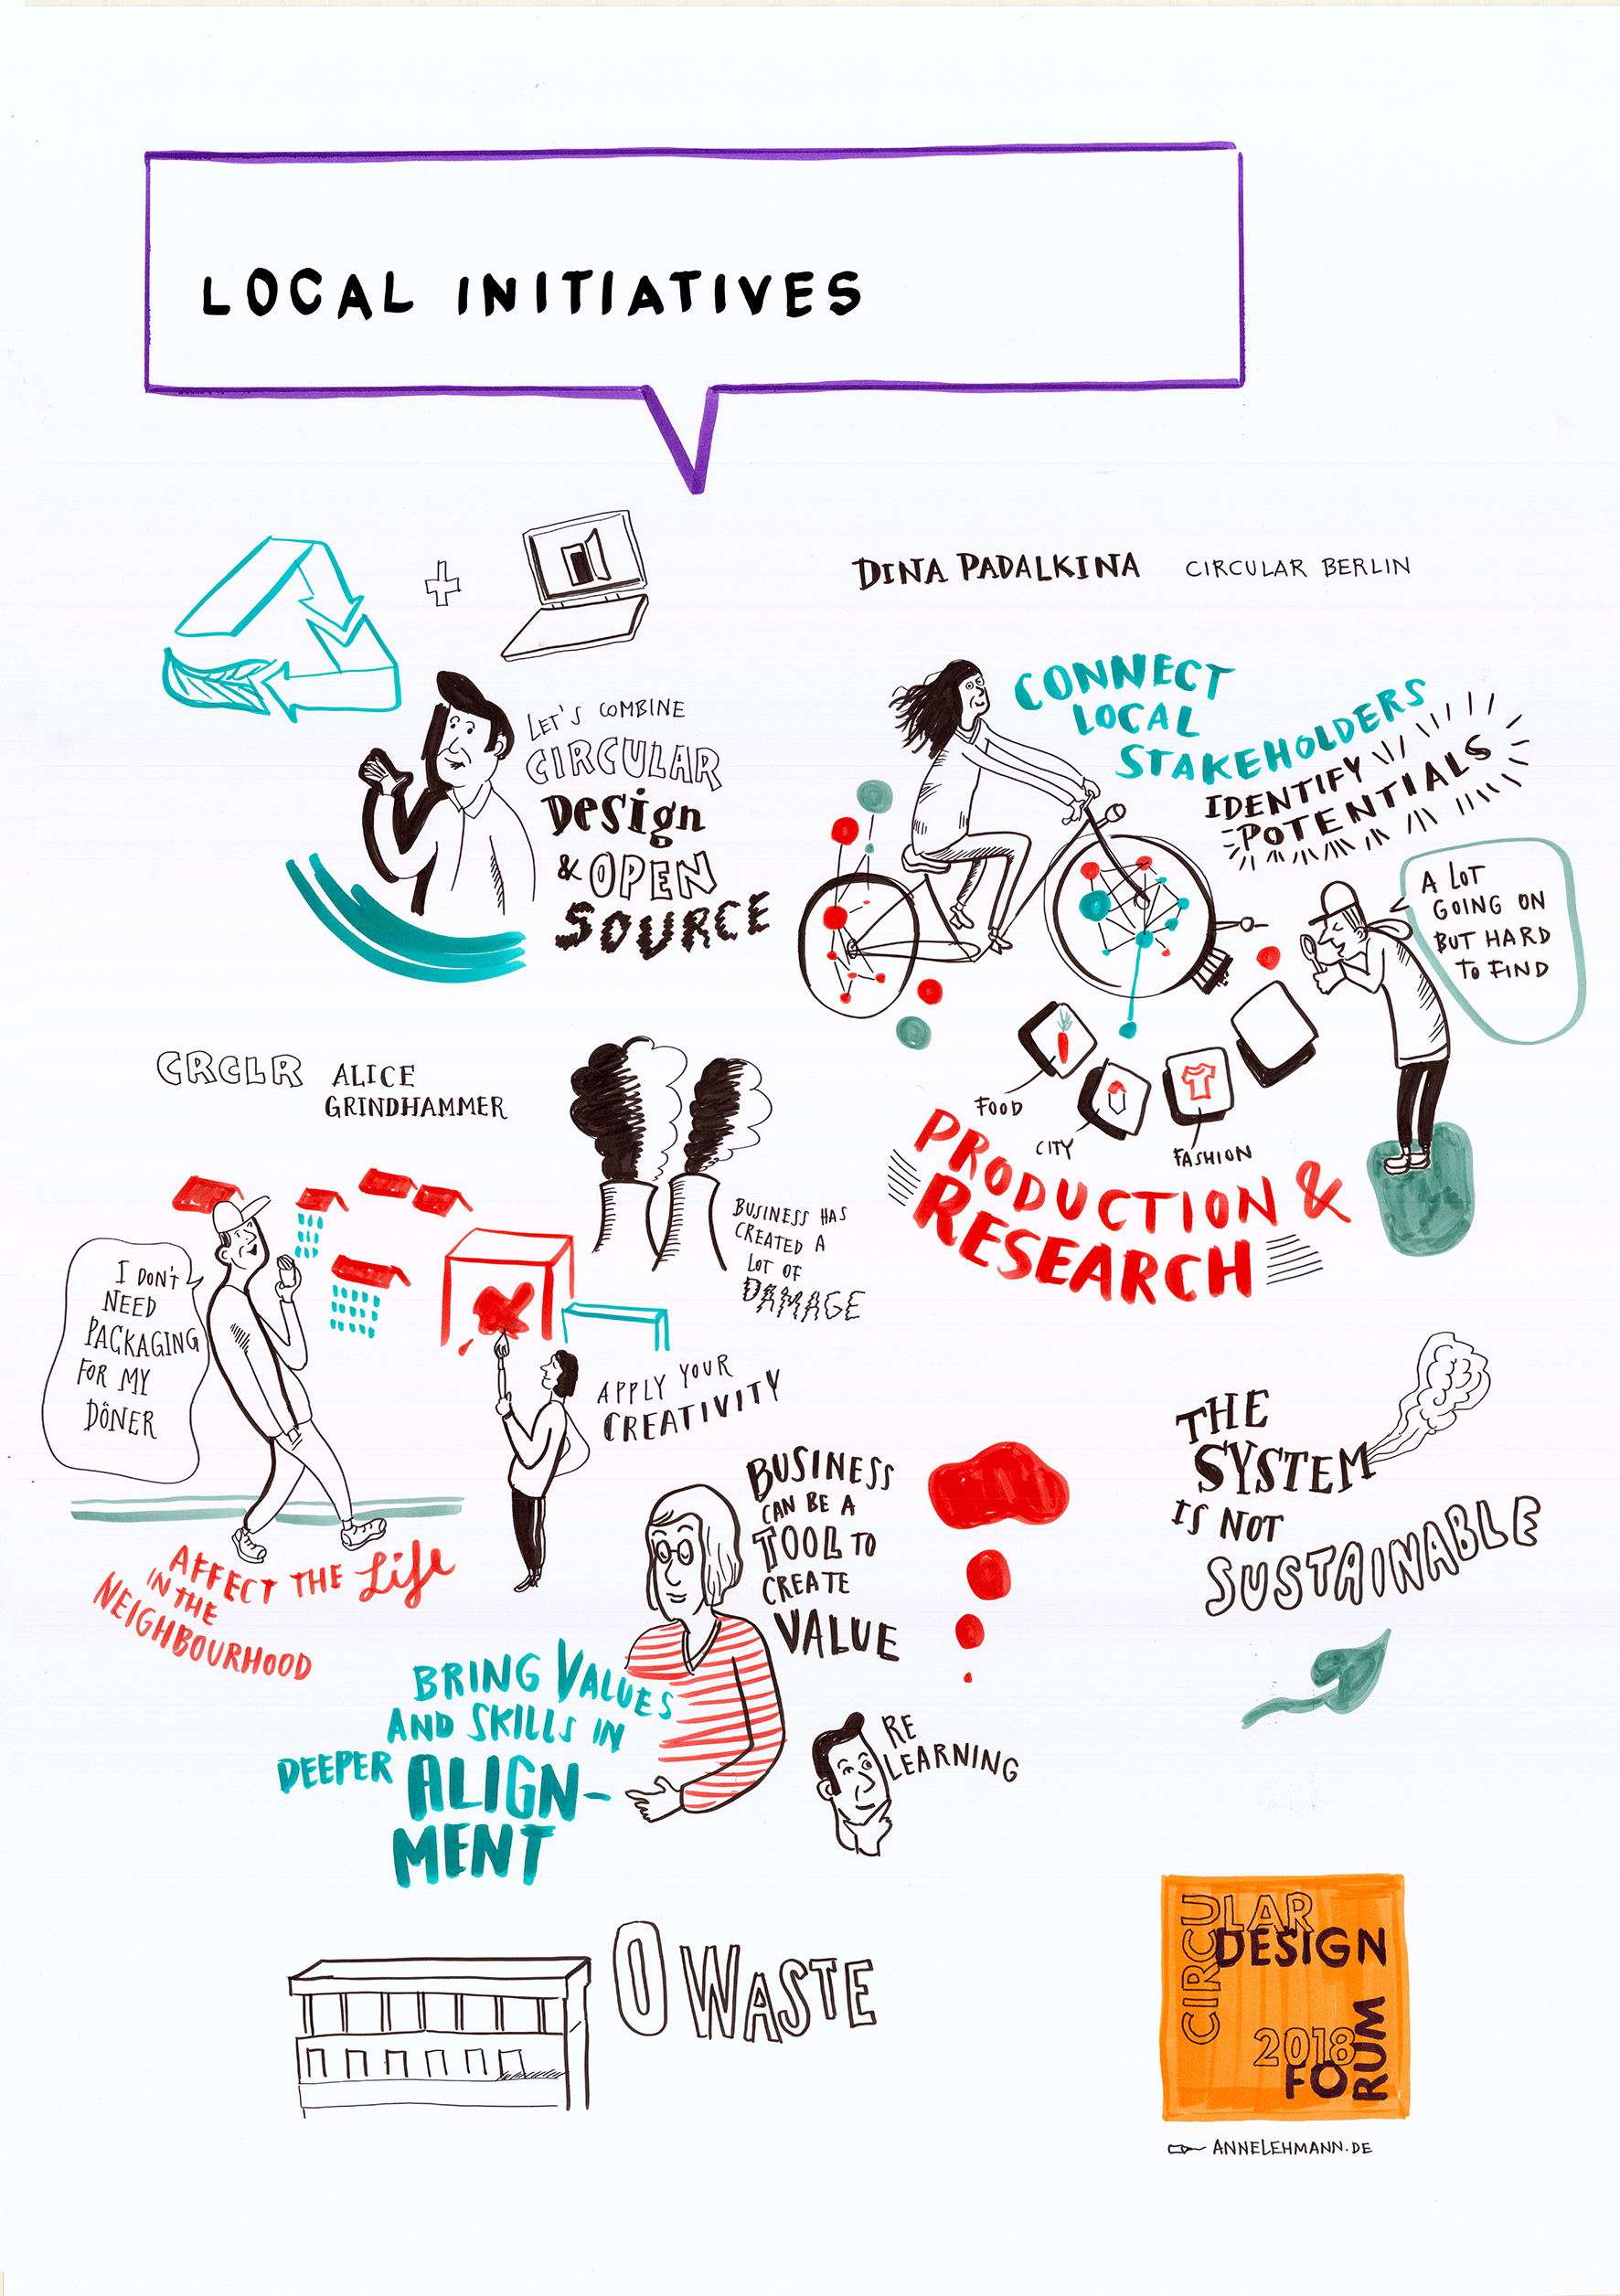 LOCAL INITIATIVES
LET'S COMBINE
CIRCULAR
Design
& OPEN
SOURCE
DINA PADALKINA CIRCULAR BERLIN
CONNECT
LOCAL
STAKEHOLDERS
IDENTIFY
POTENTIALS
A LOT
GOING ON
BUT HARD
TO FIND
FOOD
CITY
FASHION
PRODUCTION &
RESEARCH
CRCLR ALICE
GRINDHAMMER
BUSINESS HAS
CREATED A
LOT OF
DAMAGE
I DON'T
NEED
PACKAGING
FOR MY
DÖNER
APPLY YOUR
CREATIVITY
AFFECT THE Life
IN THE
NEIGHBOURHOOD
BUSINESS
CAN BE A
TOOL TO
CREATE
VALUE
THE
SYSTEM
IS NOT
SUSTAINABLE
BRING VALUES
AND SKILLS IN
DEEPER ALIGN-
MENT
RE
LEARNING
0 WASTE
CIRCULAR
DESIGN
2018
FORUM
ANNELEHMANN.DE